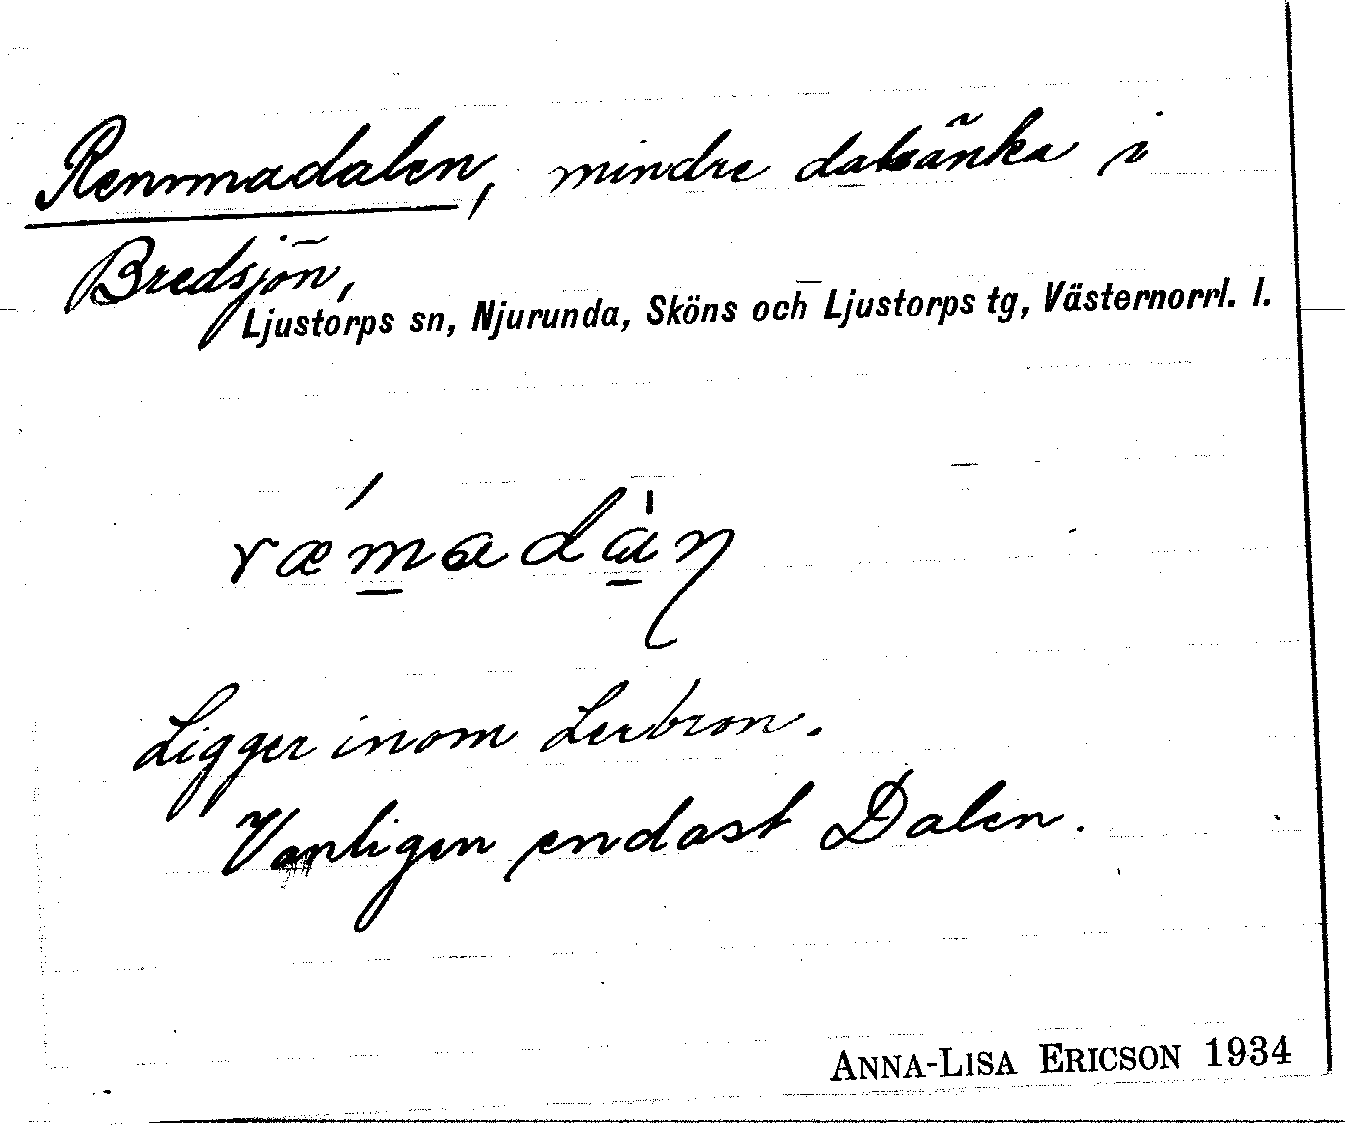 Remmadalen, mindre dalsänka i
Bredsjön,
Ljustorps sn, Njurunda, Sköns och Ljustorps tg, Västernorrl. l.
ræ´madàn
Ligger inom Lerbron.
Vanligen endast Dalen.
ANNA-LISA ERICSON 1934